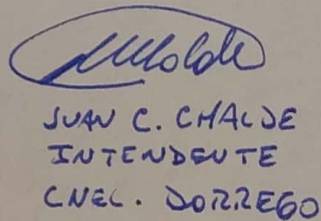 JUAN C. CHALDE
INTENDENTE
CNEL. DORREGO